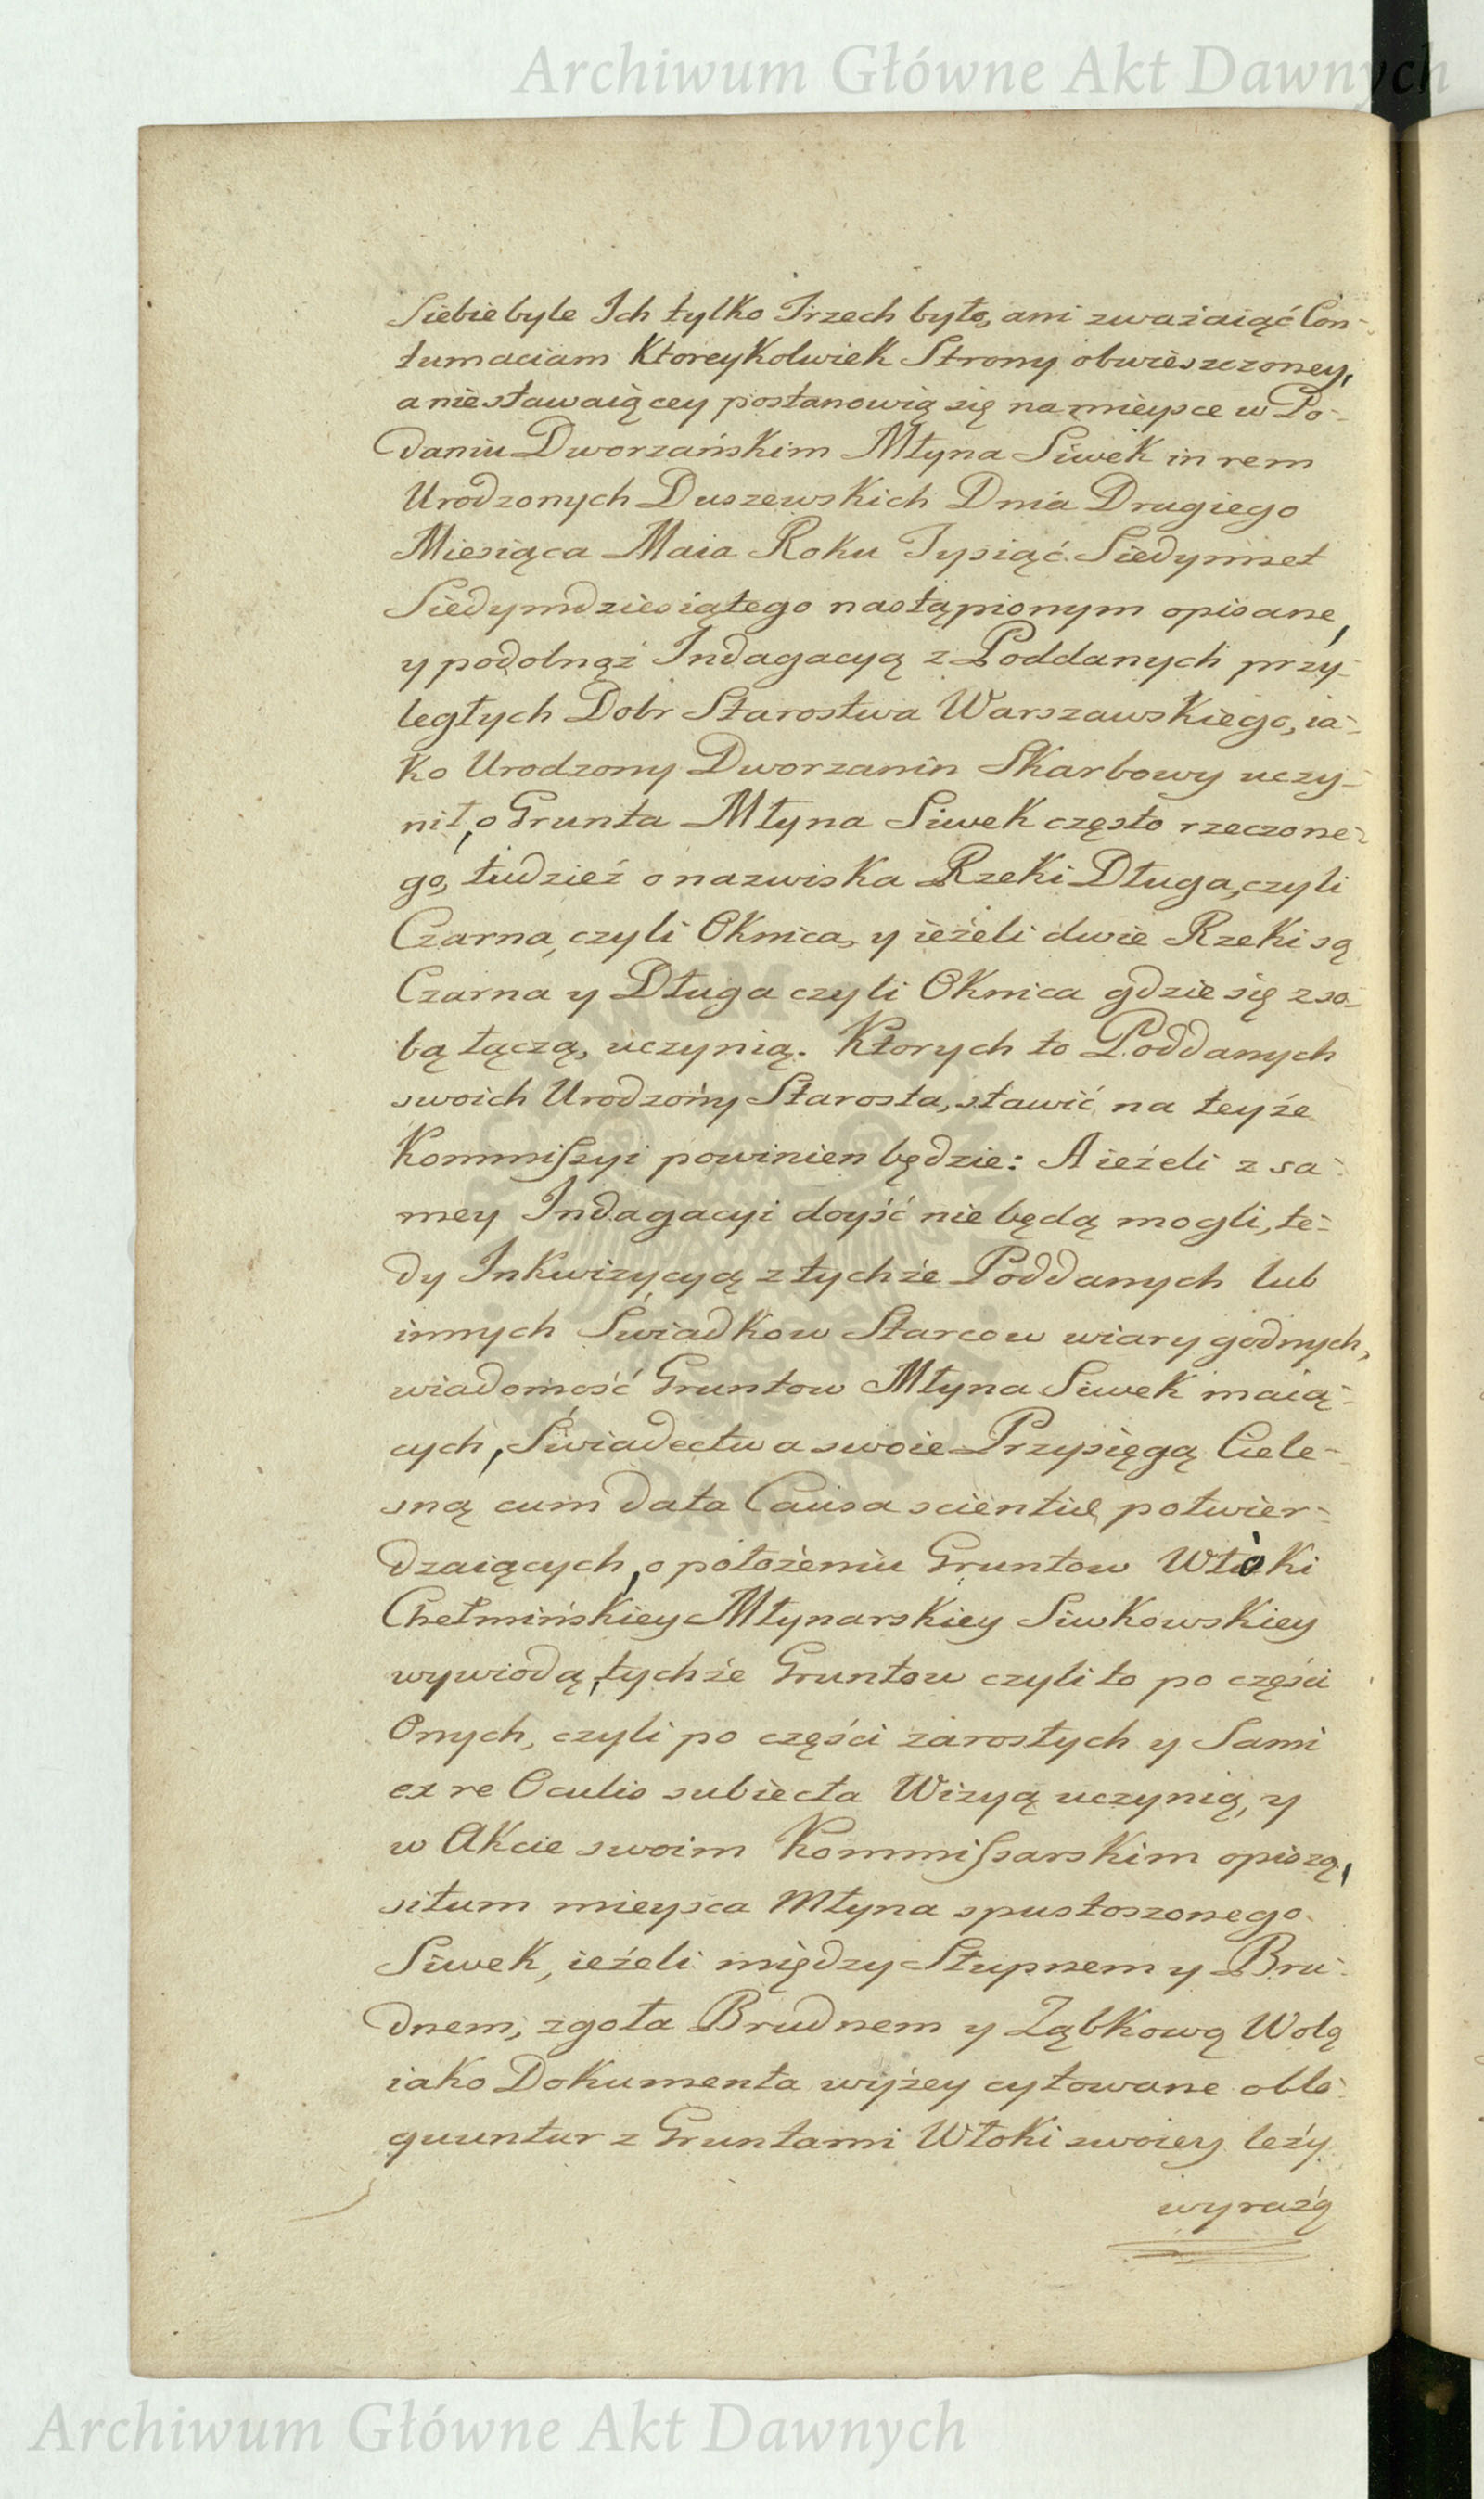 Archiwum Główne Akt Dawnych
Siebie byle Ich tylko Trzech było, ani zważaiąć Con-
tumaciam Ktoreykolwiek Strony obwieszczoney,
a niestawaiącey postanowią się na mieysce w Po-
daniu Dworzańskim Młyna Siwek in rem
Urodzonych Duszewskich Dnia Drugiego
Miesiąca Maia Roku Tysiąć Siedymset
Siedymdziesiątego nastąpionym opisane,
y podolnąż Indagacyą z Poddanych przy-
ległych Dobr Starostwa Warszawskiego, ia-
ko Urodzony Dworzanin Skarbowy uczy-
nił, o Grunta Młyna Siwek często rzeczone-
go, tudzież o nazwiska Rzeki Długa, czyli
Czarna, czyli Oknica, y ieżeli dwie Rzeki są
Czarna y Długa czyli Oknica gdzie się z so-
bą łączą, uczynią. Ktorych to Poddanych
swoich Urodzony Starosta, stawić na teyże
Kommiszyi powinien będzie: A ieżeli z sa-
mey Indagacyi doyść nie będą mogli, te-
dy Inkwizycyą z tychże Poddanych lub
innych Swiadkow Starcow wiary godnych,
wiadomość Gruntow Młyna Siwek maią-
cych, Świadectwa swoie Przysięgą Ciele-
sną cum data Causa scientiæ potwier-
dzaiących, o położeniu Gruntow Włoki
Chełmińskiey Młynarskiey Siwkowskiey
wywiodą, tychże Gruntow czyli to po części
Onych, czyli po części zarosłych y Sami
ex re Oculis subiecta Wizyą uczynią, y
w Akcie swoim Kommissarskim opiszą,
situm mieysca Młyna spustoszonego
Siwek, ieżeli między Słupnem y Bru-
dnem, zgoła Brudnem y Ząbkową Wolą
iako Dokumenta wyżey cytowane oblo-
quuntur z Gruntami Włoki swoiey leży
wyrażą
Archiwum Główne Akt Dawnych